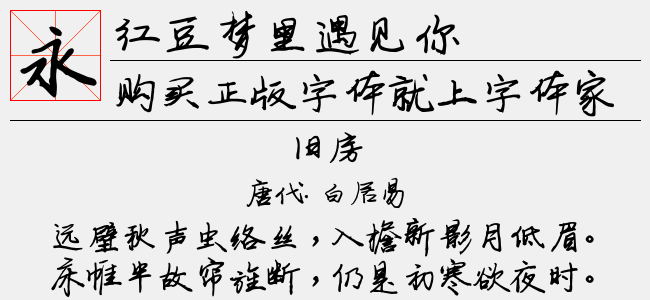 永
红豆梦里遇见你
购买正版字体就上字体家
旧房
唐代·白居易
远壁秋声虫络丝，入檐新影月低眉。
床帷半故帘旌断，仍是初寒欲夜时。